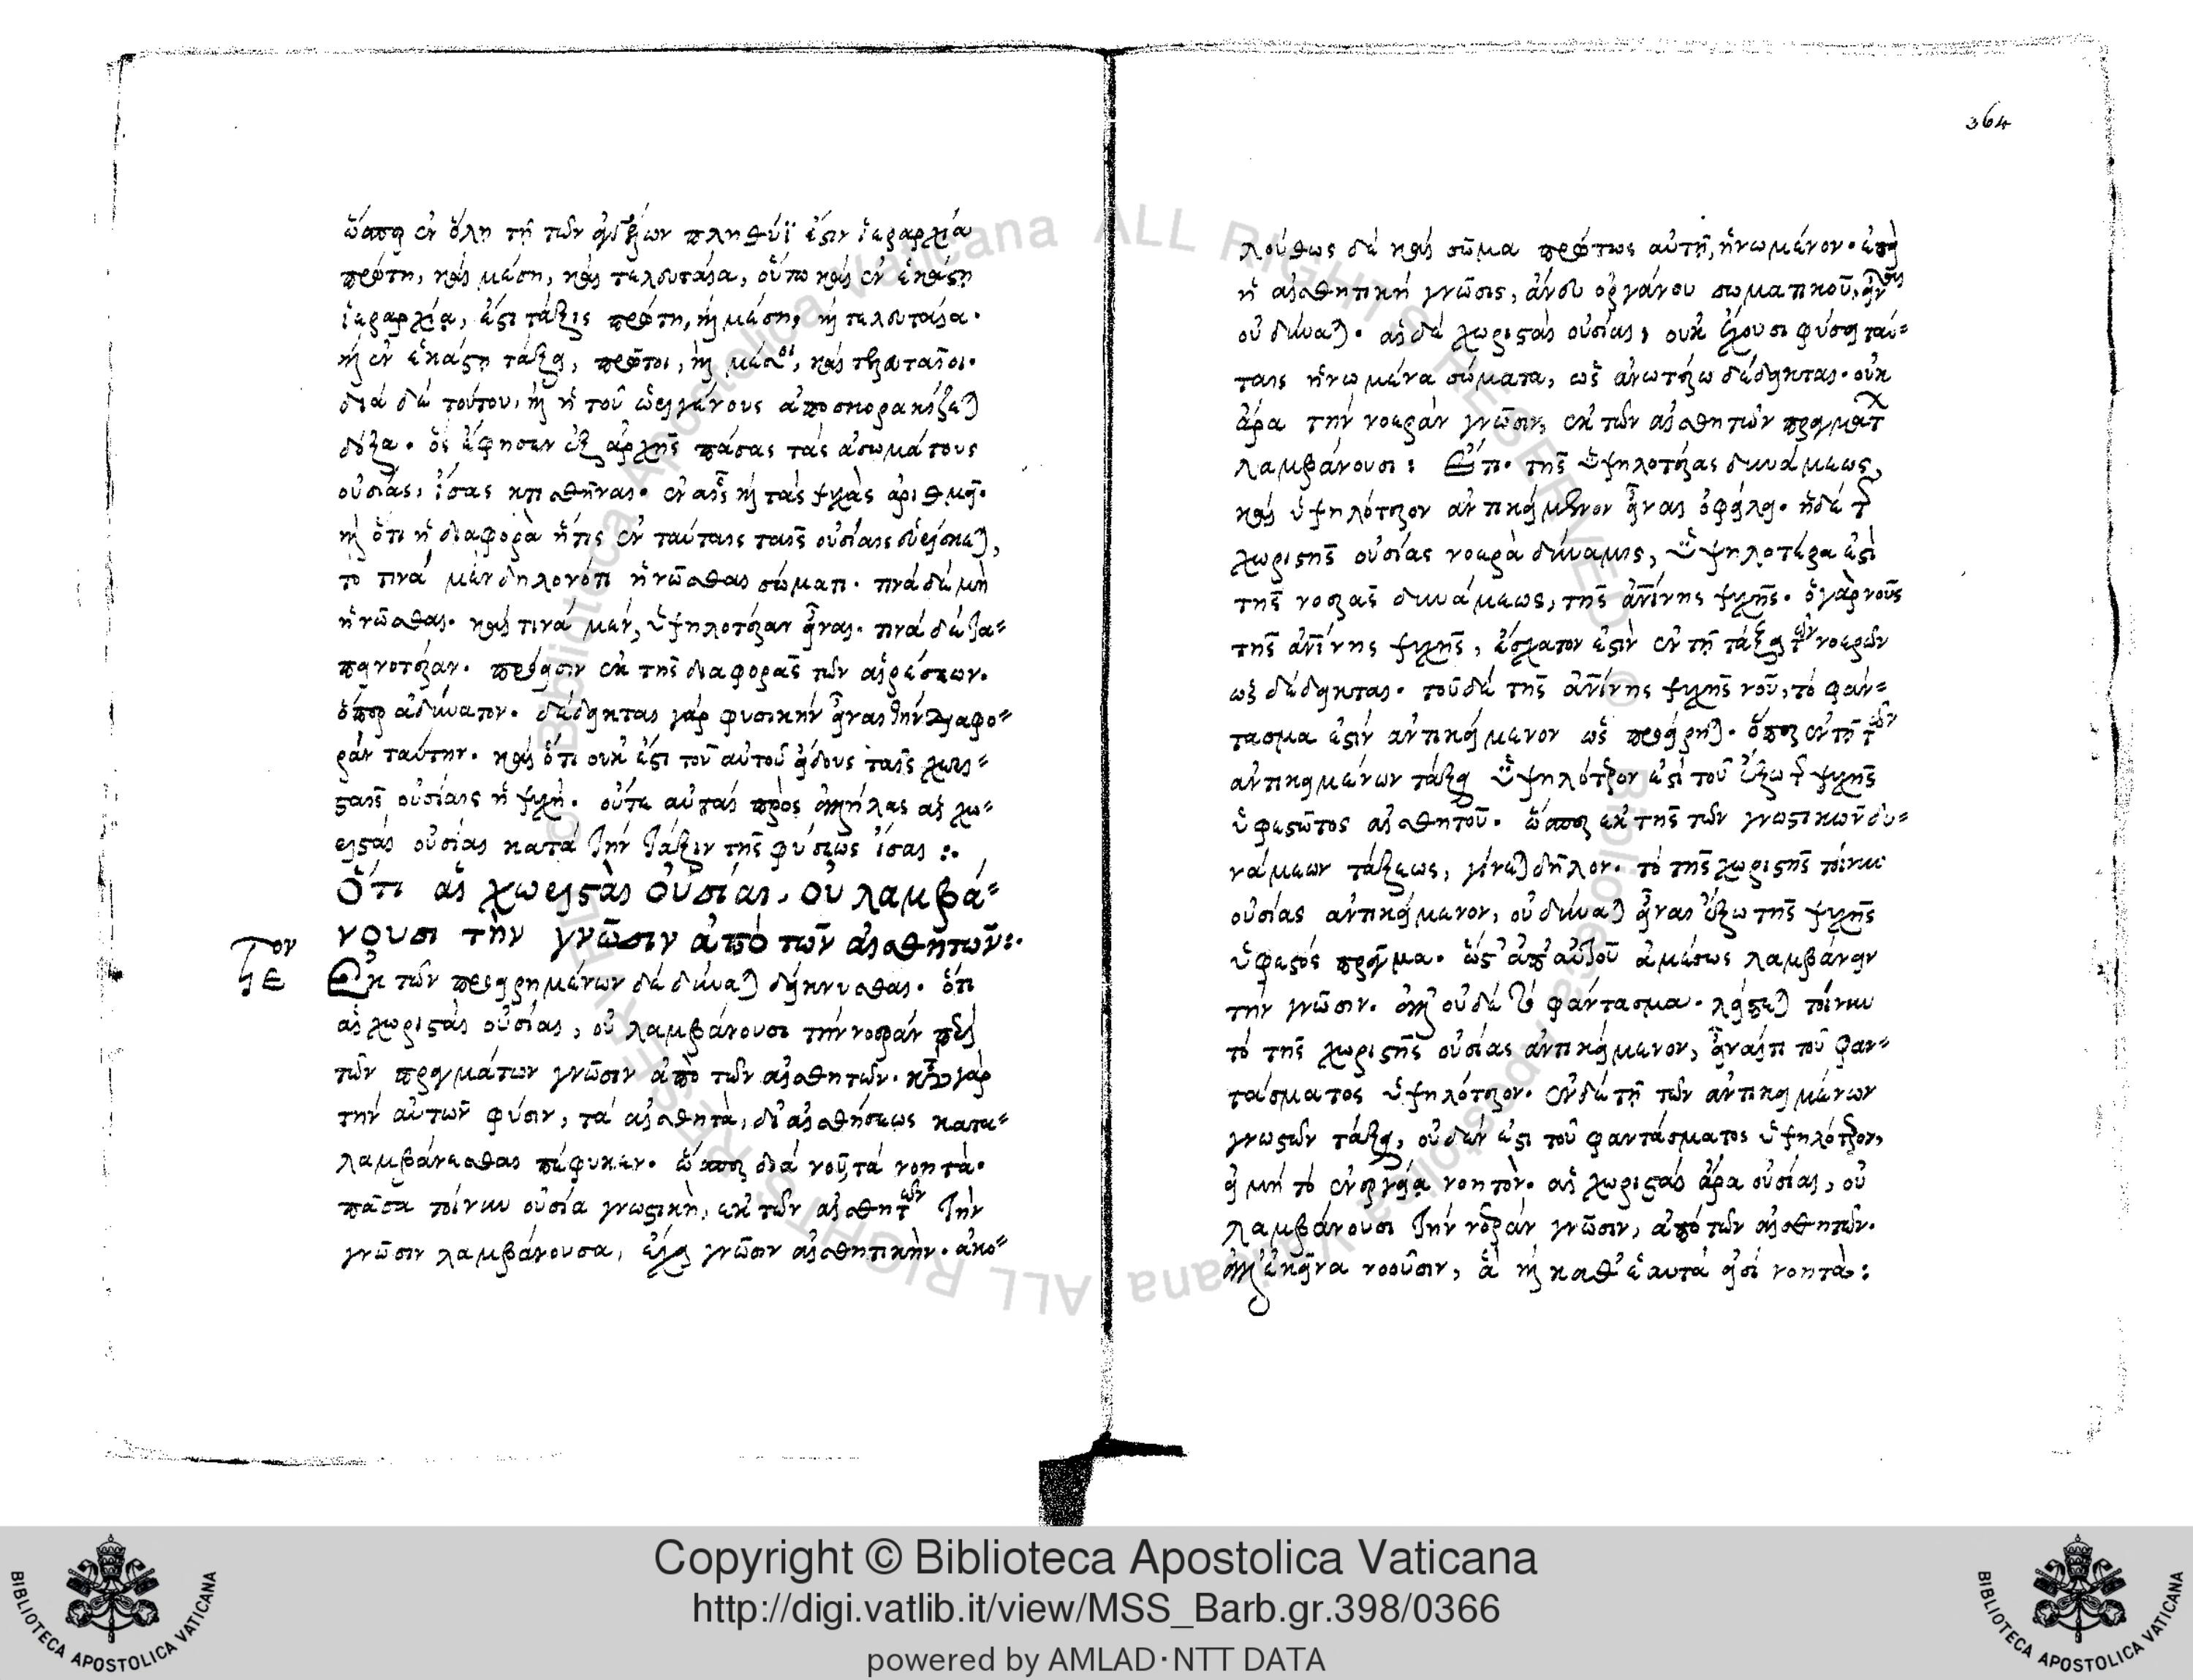 ὥσπερ ἐν ὅλῃ τῇ τῶν ἀγγέλων πληθύϊ ἐστὶν ἱεραρχία
πρώτη, καὶ μέση, καὶ τελευταία, οὕτω καὶ ἐν ἑκάστῃ
ἱεραρχίᾳ, ἐστὶ τάξις πρώτη, καὶ μέση, καὶ τελευταία.
καὶ ἐν ἑκάστῃ τάξει, πρῶτοι, καὶ μέσοι, καὶ τελευταῖοι.
διὰ δὲ τούτου, καὶ ἡ τοῦ ὠριγένους ἀποσκορακίζεται
δόξα. ὃς ἔφησεν ἐξ ἀρχῆς πάσας τὰς ἀσωμάτους
οὐσίας, ἴσας κτισθῆναι. ἐν αἷς καὶ τὰς ψυχὰς ἀριθμεῖ.
καὶ ὅτι ἡ διαφορὰ ἥτις ἐν ταύταις ταῖς οὐσίαις εὑρίσκεται,
τὸ τινὰ μὲν δηλονότι ἡνῶσθαι σώματι. τινὰ δὲ μὴ
ἡνῶσθαι. καὶ τινὰ μὲν, ὑψηλοτέραν εἶναι. τινὰ δὲ τα-
πεινοτέραν. πρόεισιν ἐκ τῆς διαφορᾶς τῶν αἱρέσεων.
ὅπερ ἀδύνατον. δέδεικται γὰρ φυσικὴν εἶναι τὴν διαφο-
ρὰν ταύτην. καὶ ὅτι οὐκ ἔστι τοῦ αὐτοῦ εἴδους ταῖς χωρι-
σταῖς οὐσίαις ἡ ψυχή. οὔτε αὐταὶ πρὸς ἀλλήλας αἱ χω-
ρισταὶ οὐσίαι κατὰ τὴν τάξιν τῆς φύσεως ἴσαι :.
Ὅτι αἱ χωρισταὶ οὐσίαι, οὐ λαμβά-
νουσι τὴν γνῶσιν ἀπὸ τῶν αἰσθητῶν:.
Ἐκ τῶν προειρημένων δὲ δύναται δείκνυσθαι. ὅτι
αἱ χωρισταὶ οὐσίαι, οὐ λαμβάνουσι τὴν νοερὰν περὶ
τῶν πραγμάτων γνῶσιν ἀπὸ τῶν αἰσθητῶν. κατὰ γὰρ
τὴν αὐτῶν φύσιν, τὰ αἰσθητὰ, δι' αἰσθήσεως κατα-
λαμβάνεσθαι πέφυκεν. ὥσπερ διὰ νοῦ, τὰ νοητά.
πᾶσα τοίνυν οὐσία γνωστικὴ, ἐκ τῶν αἰσθητῶν τὴν
γνῶσιν λαμβάνουσα, ἔχει γνῶσιν αἰσθητικήν. ἀκο-
364
λούθως δὲ καὶ σῶμα πρώτως αὐτῇ, ἡνωμένον. ἐπεὶ
ἡ αἰσθητικὴ γνῶσις, ἄνευ ὀργάνου σωματικοῦ, εἶναι
οὐ δύναται. αἱ δὲ χωρισταὶ οὐσίαι, οὐκ ἔχουσι φύσει ταύ-
ταις ἡνωμένα σώματα, ὡς ἀνωτέρω δέδεικται. οὐκ
ἄρα τὴν νοερὰν γνῶσιν, ἐκ τῶν αἰσθητῶν πραγμάτων
λαμβάνουσι : Ἔτι. τῆς ὑψηλοτέρας δυνάμεως,
καὶ ὑψηλότερον ἀντικείμενον εἶναι ὀφείλει. ἡ δὲ τῆς
χωριστῆς οὐσίας νοερὰ δύναμις, ὑψηλοτέρα ἐστὶ
τῆς νοερᾶς δυνάμεως, τῆς ἀνίνης ψυχῆς. ὁ γὰρ νοῦς
τῆς ἀνίνης ψυχῆς, ἔσχατον ἐστὶν ἐν τῇ τάξει τῶν νοερῶν
ὡς δέδεικται. τοῦ δὲ τῆς ἀνίνης ψυχῆς νοῦ, τὸ φάν-
τασμα ἐστὶν ἀντικείμενον ὡς προείρηται. ὅπερ ἐν τῇ τῶν
ἀντικειμένων τάξει ὑψηλότερον ἐστὶ τοῦ ἔξω τῆς ψυχῆς
ὑφεστῶτος αἰσθητοῦ. ὥσπερ ἐκ τῆς τῶν γνωστικῶν δυ-
νάμεων τάξεως, γίνεται δῆλον. τὸ τῆς χωριστῆς τοίνυν
οὐσίας ἀντικείμενον, οὐ δύναται εἶναι ἔξω τῆς ψυχῆς
ὑφεστὸς πρᾶγμα. ὥστ' ἀπ' αὐτοῦ ἀμέσως λαμβάνειν
τὴν γνῶσιν. ἀλλ' οὐδὲ τὸ φάντασμα. λείπεται τοίνυν
τὸ τῆς χωριστῆς οὐσίας ἀντικείμενον, εἶναί τι τοῦ φαν-
τάσματος ὑψηλότερον. ἐν δὲ τῇ τῶν ἀντικειμένων
γνωστῶν τάξει, οὐδέν ἐστι τοῦ φαντάσματος ὑψηλότερον,
εἰ μὴ τὸ ἐνεργείᾳ νοητόν. αἱ χωρισταὶ ἄρα οὐσίαι, οὐ
λαμβάνουσι τὴν νοερὰν γνῶσιν, ἀπὸ τῶν αἰσθητῶν.
ἀλλ' ἐκεῖνα νοοῦσιν, ἃ καὶ καθ' ἑαυτά εἰσι νοητά :
Copyright © Biblioteca Apostolica Vaticana
http://digi.vatlib.it/view/MSS_Barb.gr.398/0366
powered by AMLAD·NTT DATA